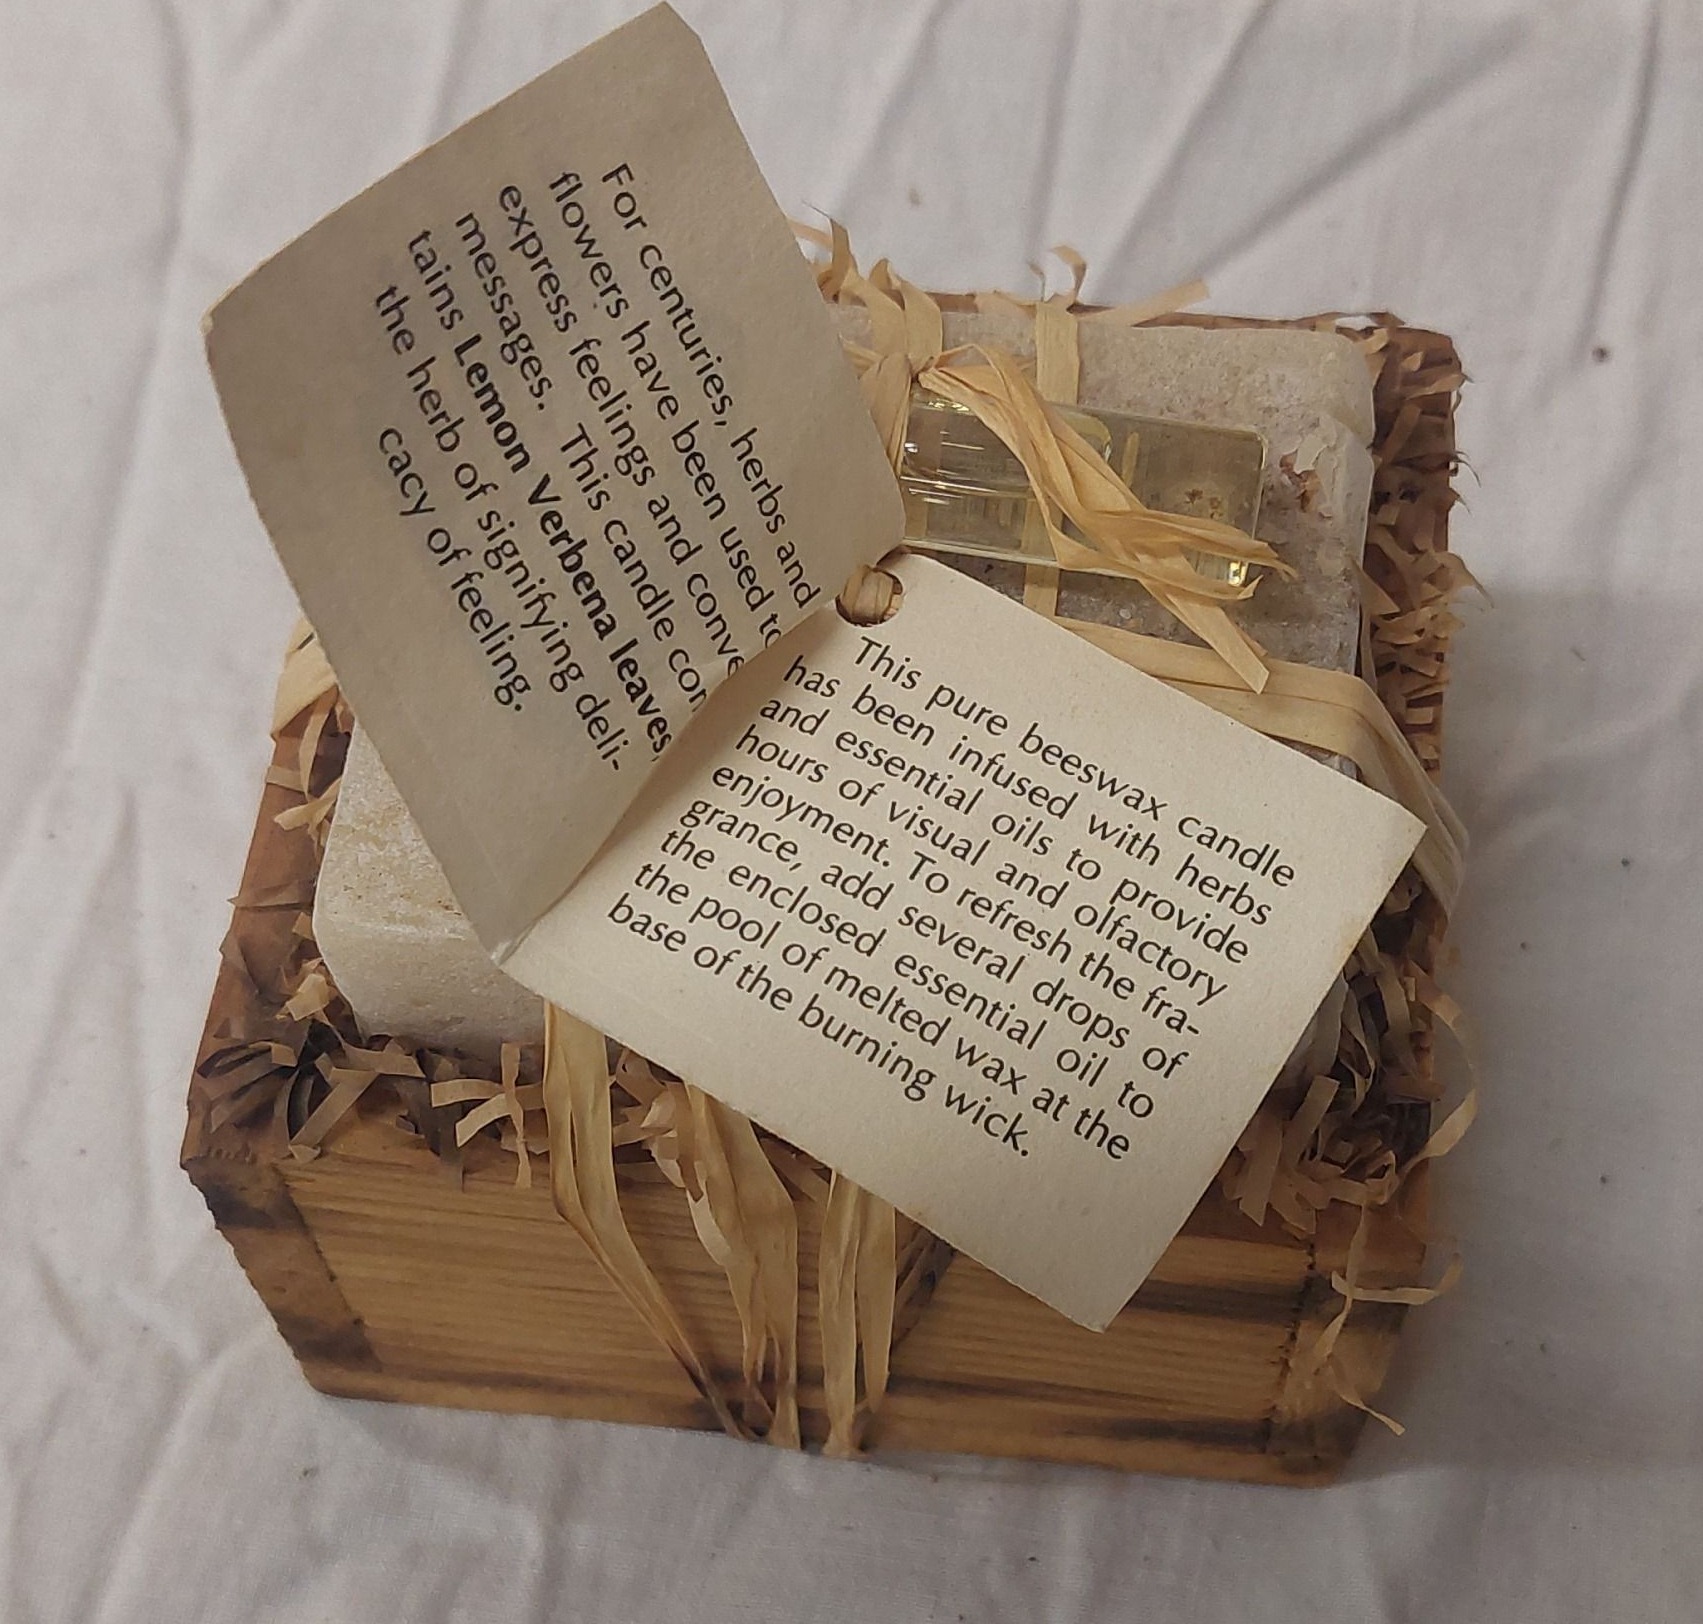 For centuries, herbs and
flowers have been used to
express feelings and conve
messages. This candle con
tains Lemon Verbena leaves,
the herb of signifying deli-
cacy of feeling.
This pure beeswax candle
has been infused with herbs
and essential oils to provide
hours of visual and olfactory
enjoyment. To refresh the fra-
grance, add several drops of
the enclosed essential oil to
the pool of melted wax at the
base of the burning wick.